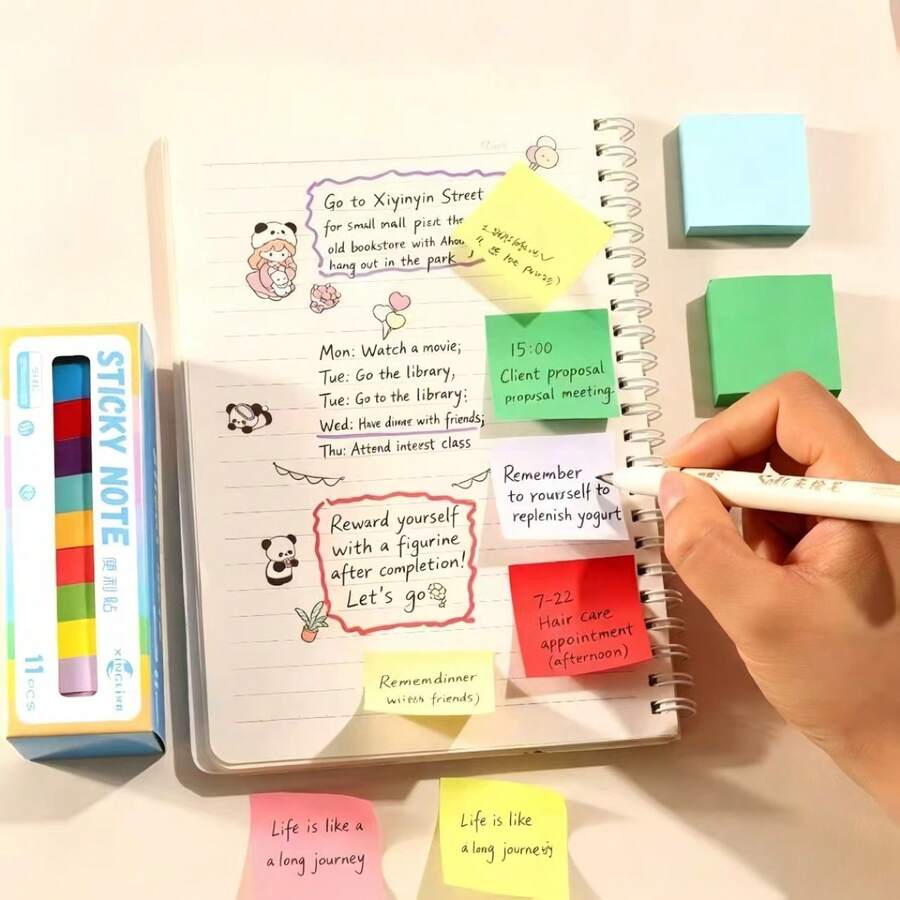 Go to Xiyinyin Street
for small mall pizit the
old bookstore with Ahou
hang out in the park
Mon: Watch a movie;
Tue: Go the library,
Tue: Go to the library:
Wed: Have dinne with friends;
Thu: Attend interest class
Reward yourself
with a figurine
after completion!
Let's go
15:00
Client proposal
proposal meeting
Remember
to yourself to
replenish yogurt
7-22
Hair care
appointment
(afternoon)
Rememdinner
friends)
Life is like a
a long journey
Life is like
a long journey
STICKY NOTE
便利贴
11 PCS